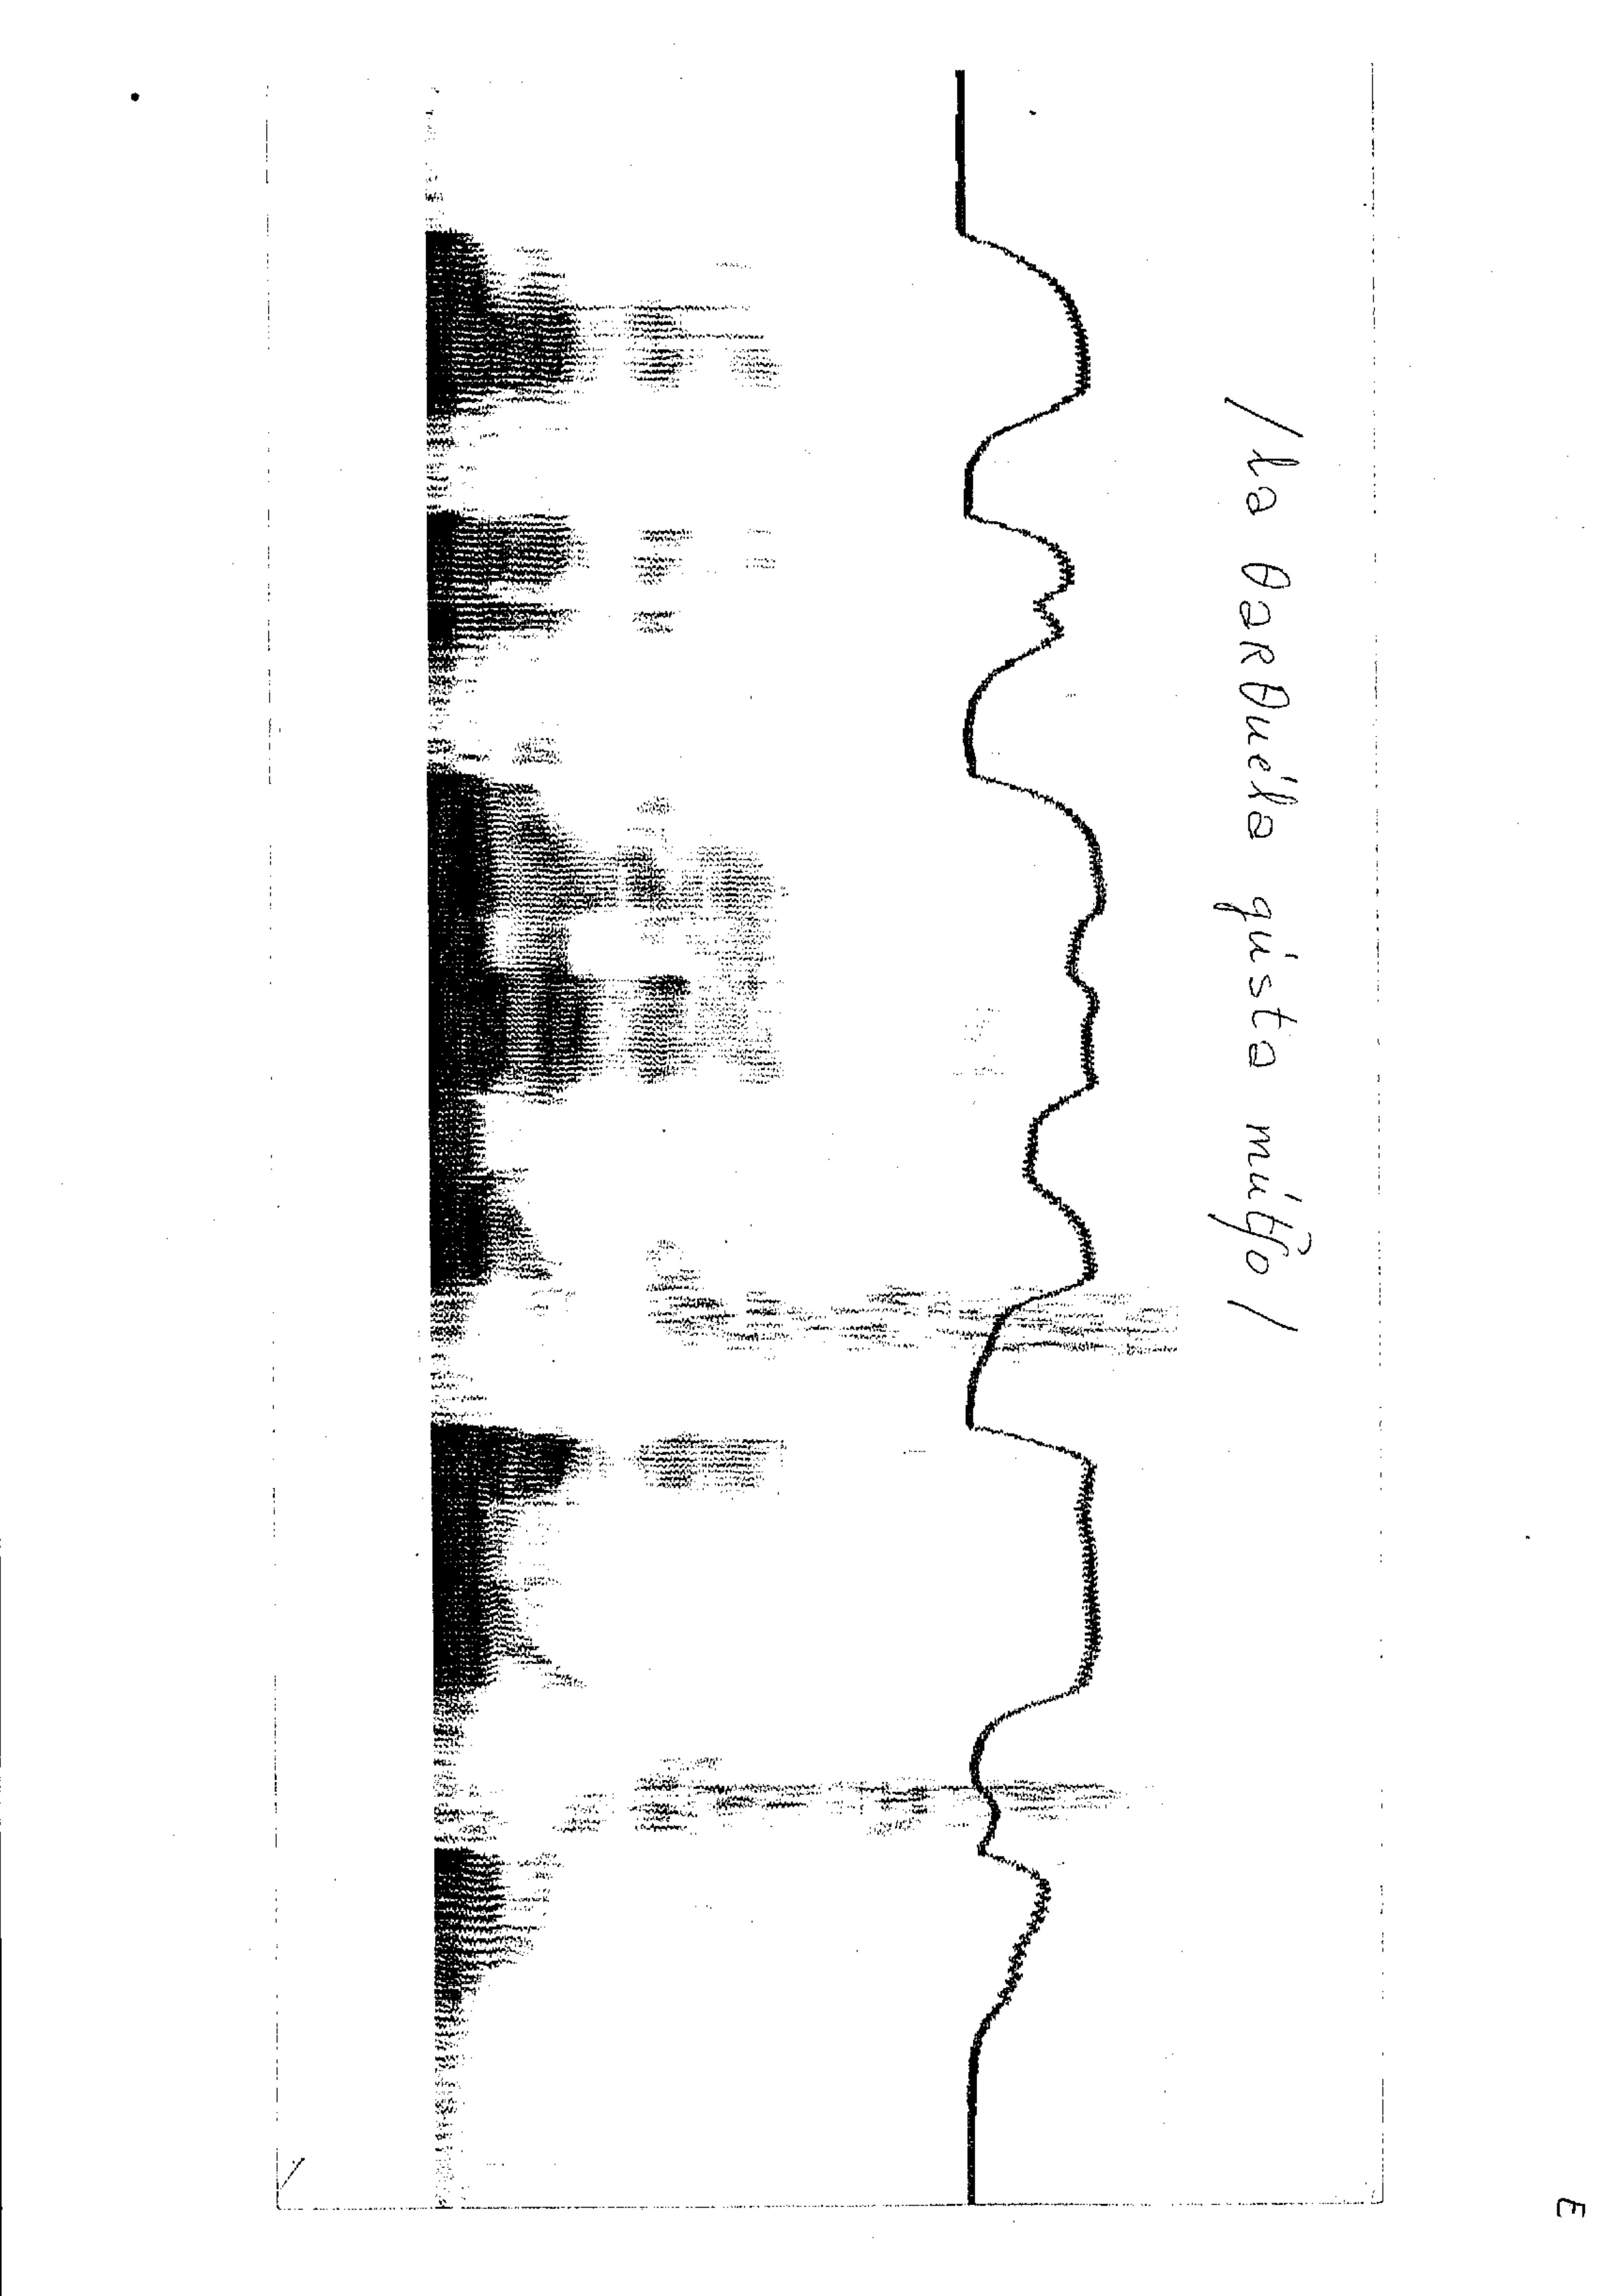 /la θaRθuéla gústa mút͡ʃo/
E